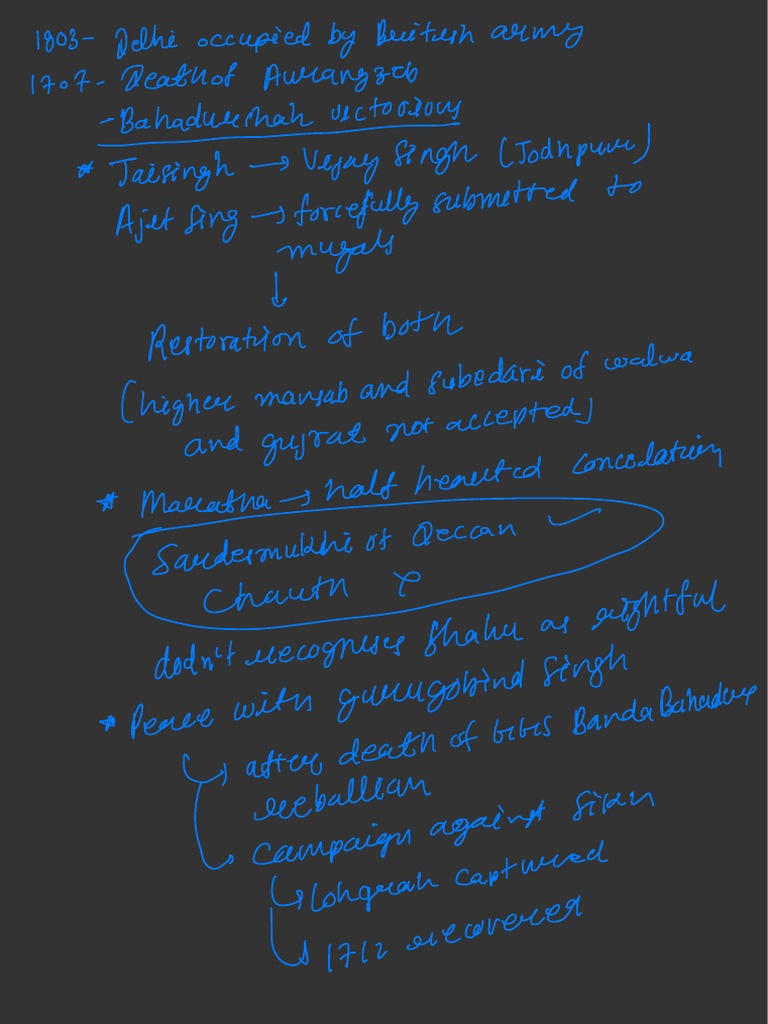 1803- Delhi occupied by British army
1707- Death of Aurangzeb
- Bahadurshah victorious
* Jaisingh → Vijay Singh (Jodhpur)
Ajit Sing → forcefully submitted to
mugals
↓
Restoration of both
(higher mansab and subedari of malwa
and gujrat not accepted)
* Maratha → half hearted
Sardesmukhi of Deccan ✓
Chauth ×
didn't recognises Shahu as rightful
* Peace with gurugobind Singh
→ after death of Banda Bahadur
reballian
→ Campaign against Sikh
→ Lohgrah captured
→ 1712 recovered